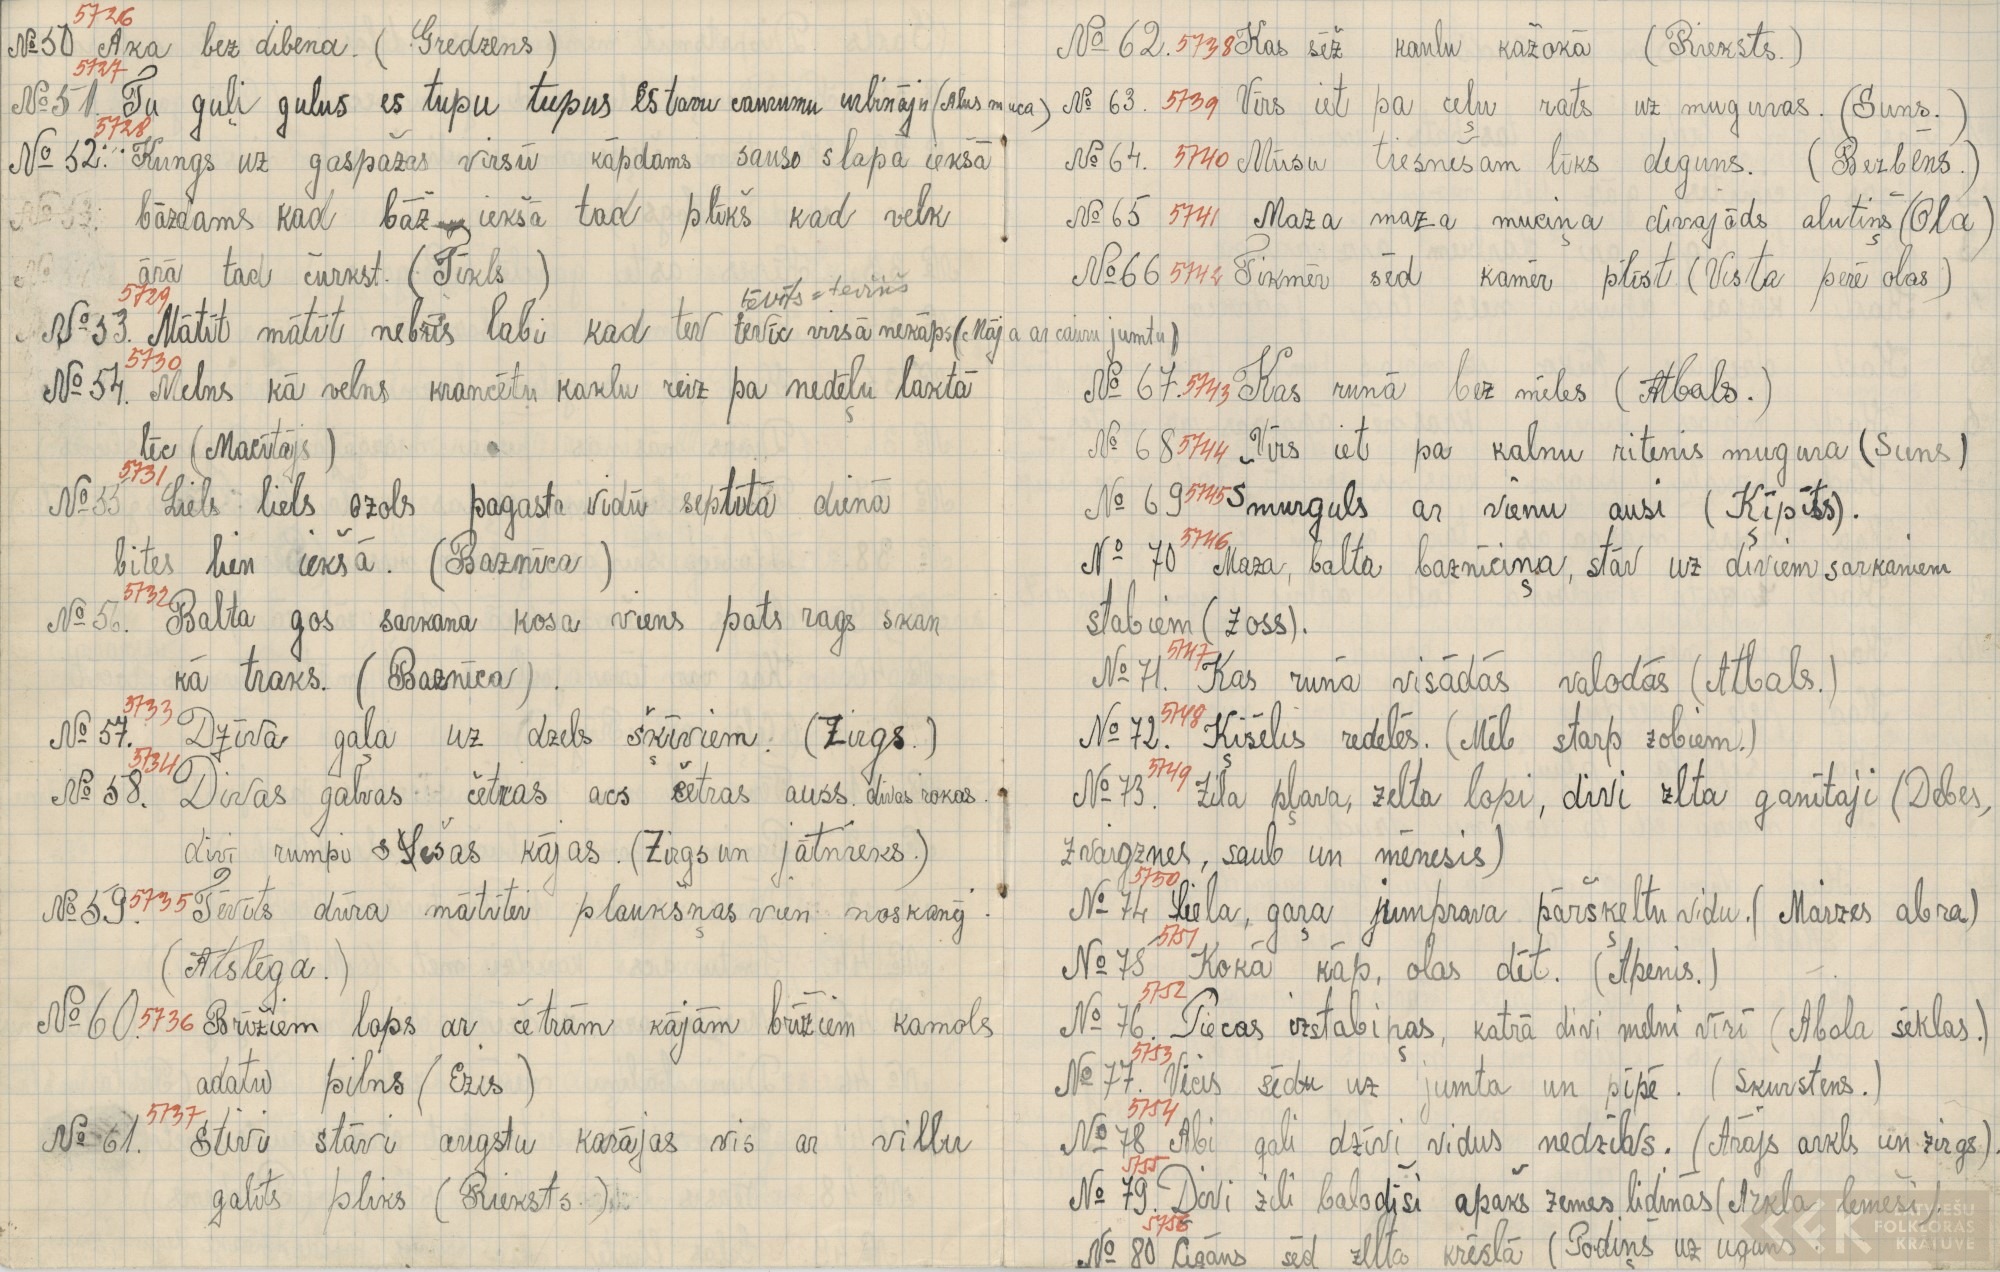 5726
№ 50 Aka bez dibena. (Gredzens)
5727
№ 51. Tu guļi gulus es tupu tupus es tavu caurumu urbināju (Alus muca)
5728
№ 52. Kungs uz gaspažas virsū kāpdams sauso slapā iekšā
bāzdams kad bāž iekšā tad plikš kad velk
ārā tad čurkst. (Tīkls)
tēvīts = teviņš
5729
№ 53. Mātīt mātīt nebūs labi kad tev tevic virsā nekāps (Māja ar cauru jumtu)
5730
№ 54. Melns kā velns krancētu kaklu reiz pa nedēļu laktā
lēc (Macītājs)
5731
№ 55 Liels liels ozols pagasta vidū septītā dienā
bites lien iekšā. (Baznīca)
5732
№ 56. Balta gos sarkana kosa viens pats rags skan
kā traks. (Baznīca).
5733
№ 57. Dzīva gaļa uz dzels šķīviem. (Zirgs.)
5734
№ 58. Divas galvas četras acs četras auss. divas rokas.
divi rumpi sešas kājas. (Zirgs un jātnieks.)
№ 59. 5735 Tēvīts dūra mātītei plaukšņas vien noskanēj.
(Atslēga.)
№ 60. 5736 Brīžiem lops ar četrām kājām brīžiem kamols
adatu pilns (Ezis)
5737
№ 61. Stīvi stāvi augstu karājas vis ar villu
galīts pliks (Rieksts.)
№ 62. 5738 Kas sēž kaulu kažokā (Rieksts.)
№ 63. 5739 Vīrs iet pa ceļu rats uz muguras. (Suns.)
№ 64. 5740 Mūsu tiesnešam līks deguns. (Bezbēns.)
№ 65 5741 Maza maza muciņa divajāds alutiņš (Ola)
№ 66 5742 Tikmēr sēd kamēr plīst (Vista perē olas)
№ 67. 5743 Kas runā bez mēles (Atbals.)
№ 68 5744 Vīrs iet pa kalnu ritenis mugura (Suns)
№ 69 5745 Smurguls ar vienu ausi (Ķipīts).
5746
№ 70 Maza, balta baznīciņa, stāv uz diviem sarkaniem
stabiem (Zoss).
5747
№ 71. Kas runā visādās valodās (Atbals.)
5748
№ 72. Ķišēlis redelēs. (Mēle starp zobiem.)
5749
№ 73. Zila pļava, zelta lopi, divi zelta ganītaji (Debes,
zvaigznes, saule un mēnesis)
5750
№ 74 Liela, gaŗa jumprava pāršķeltu vidu. (Maizes abra)
5751
№ 75 Kokā kāp, olas dēt. (Apenis.)
5752
№ 76. Piecas izstabiņas, katrā divi melni vīri (Abola sēklas.)
5753
№ 77. Vecis sēdu uz jumta un pīpē. (Skurstens.)
5754
№ 78 Abi gali dzīvi vidus nedzīvs. (Arājs arkls un zirgs).
5755
№ 79. Divi zili balodīši apakš zemes lidinās (Arkla lemeši).
5756
№ 80 Cigāns sēd zelta krēslā (Podiņš uz uguns.
LATVIEŠU
FOLKLORAS
KRĀTUVE